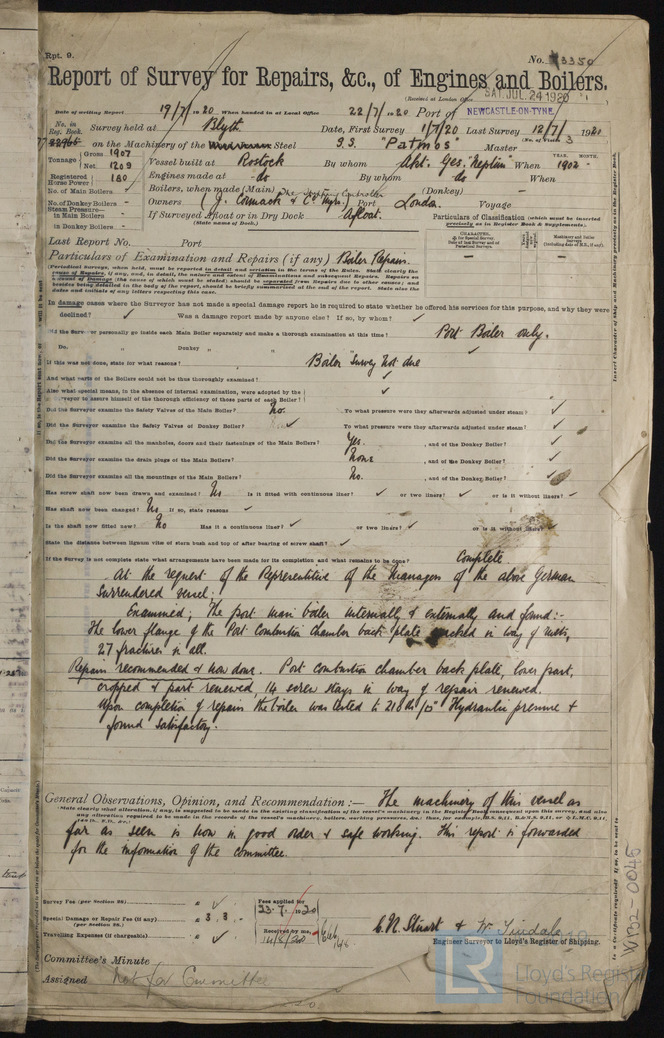 Rpt. 9.
No. 73350
Report of Survey for Repairs, &c., of Engines and Boilers.
(Received at London Office SAT. JUL. 24 1920)
Date of writing Report 19/7/1920 When handed in at Local Office 22/7/1920 Port of NEWCASTLE-ON-TYNE
No. in Reg. Book. Survey held at Blyth Date, First Survey 1/7/20 Last Survey 12/7/1920
(No. of Visits 3)
on the Machinery of the Steel S.S. "Patmos" Master
Tonnage Gross 1907 Net 1209 Vessel built at Rostock By whom Akt. Ges. "Neptun" When 1902 -
YEAR. MONTH.
Registered Horse Power 180 Engines made at do By whom do When
No. of Main Boilers Boilers, when made (Main) (Donkey) -
The Shipping Controller
No. of Donkey Boilers - Owners (J. Cormack & Co Mgrs.) Port London Voyage
Steam Pressure— in Main Boilers - If Surveyed Afloat or in Dry Dock Afloat.
(State name of Dock.)
in Donkey Boilers -
Particulars of Classification (which must be inserted precisely as in Register Book & Supplements).
Last Report No. Port
Particulars of Examination and Repairs (if any) Boiler Repairs.
In damage cases where the Surveyor has not made a special damage report he is required to state whether he offered his services for this purpose, and why they were
declined? ✓ Was a damage report made by anyone else? If so, by whom? ✓
Did the Surveyor personally go inside each Main Boiler separately and make a thorough examination at this time? Port Boiler only.
Do. „ Donkey „ „ ✓
If this was not done, state for what reasons? Boiler Survey not due
And what parts of the Boilers could not be thoroughly examined? ✓
Also what special means, in the absence of internal examination, were adopted by the Surveyor to assure himself of the thorough efficiency of those parts of each Boiler? ✓
Did the Surveyor examine the Safety Valves of the Main Boiler? No. To what pressure were they afterwards adjusted under steam? ✓
Did the Surveyor examine the Safety Valves of Donkey Boiler? ✓ To what pressure were they afterwards adjusted under steam? ✓
Did the Surveyor examine all the manholes, doors and their fastenings of the Main Boilers? Yes. , and of the Donkey Boiler? ✓
Did the Surveyor examine the drain plugs of the Main Boilers? None , and of the Donkey Boiler? ✓
Did the Surveyor examine all the mountings of the Main Boilers? No. , and of the Donkey Boiler? ✓
Has screw shaft now been drawn and examined? No Is it fitted with continuous liner? ✓ or two liners? ✓ or is it without liners? ✓
Has shaft now been changed? No If so, state reasons ✓
Is the shaft now fitted new? No Has it a continuous liner? ✓ or two liners? ✓ or is it without liners? ✓
State the distance between lignum vitæ of stern bush and top of after bearing of screw shaft? ✓
If the Survey is not complete state what arrangements have been made for its completion and what remains to be done? Complete
At the request of the Representative of the Managers of the above German
Surrendered vessel:
Examined; The port main boiler internally & externally and found:-
The lower flange of the Port Combustion Chamber back plate cracked in way of rivets,
27 fractures in all.
Repairs recommended & now done. Port combustion chamber back plate, lower part,
cropped & part renewed, 14 screw stays in way of repair renewed.
Upon completion of repairs the boiler was tested to 210 lb/□" Hydraulic pressure &
found satisfactory.
General Observations, Opinion, and Recommendation :— The machinery of this vessel as
far as seen is now in good order & safe working. This report is forwarded
for the information of the committee.
Survey Fee (per Section 28) ✓
Special Damage or Repair Fee (if any) (per Section 28.) 3.3.-
Travelling Expenses (if chargeable) ✓
Fees applied for 23.7.1920
Received by me,
C.N. Stuart & W. Tindale
Engineer Surveyor to Lloyd's Register of Shipping.
Committee's Minute
Assigned Not for Committee
W132-0045
LR
Lloyd's Register
Foundation